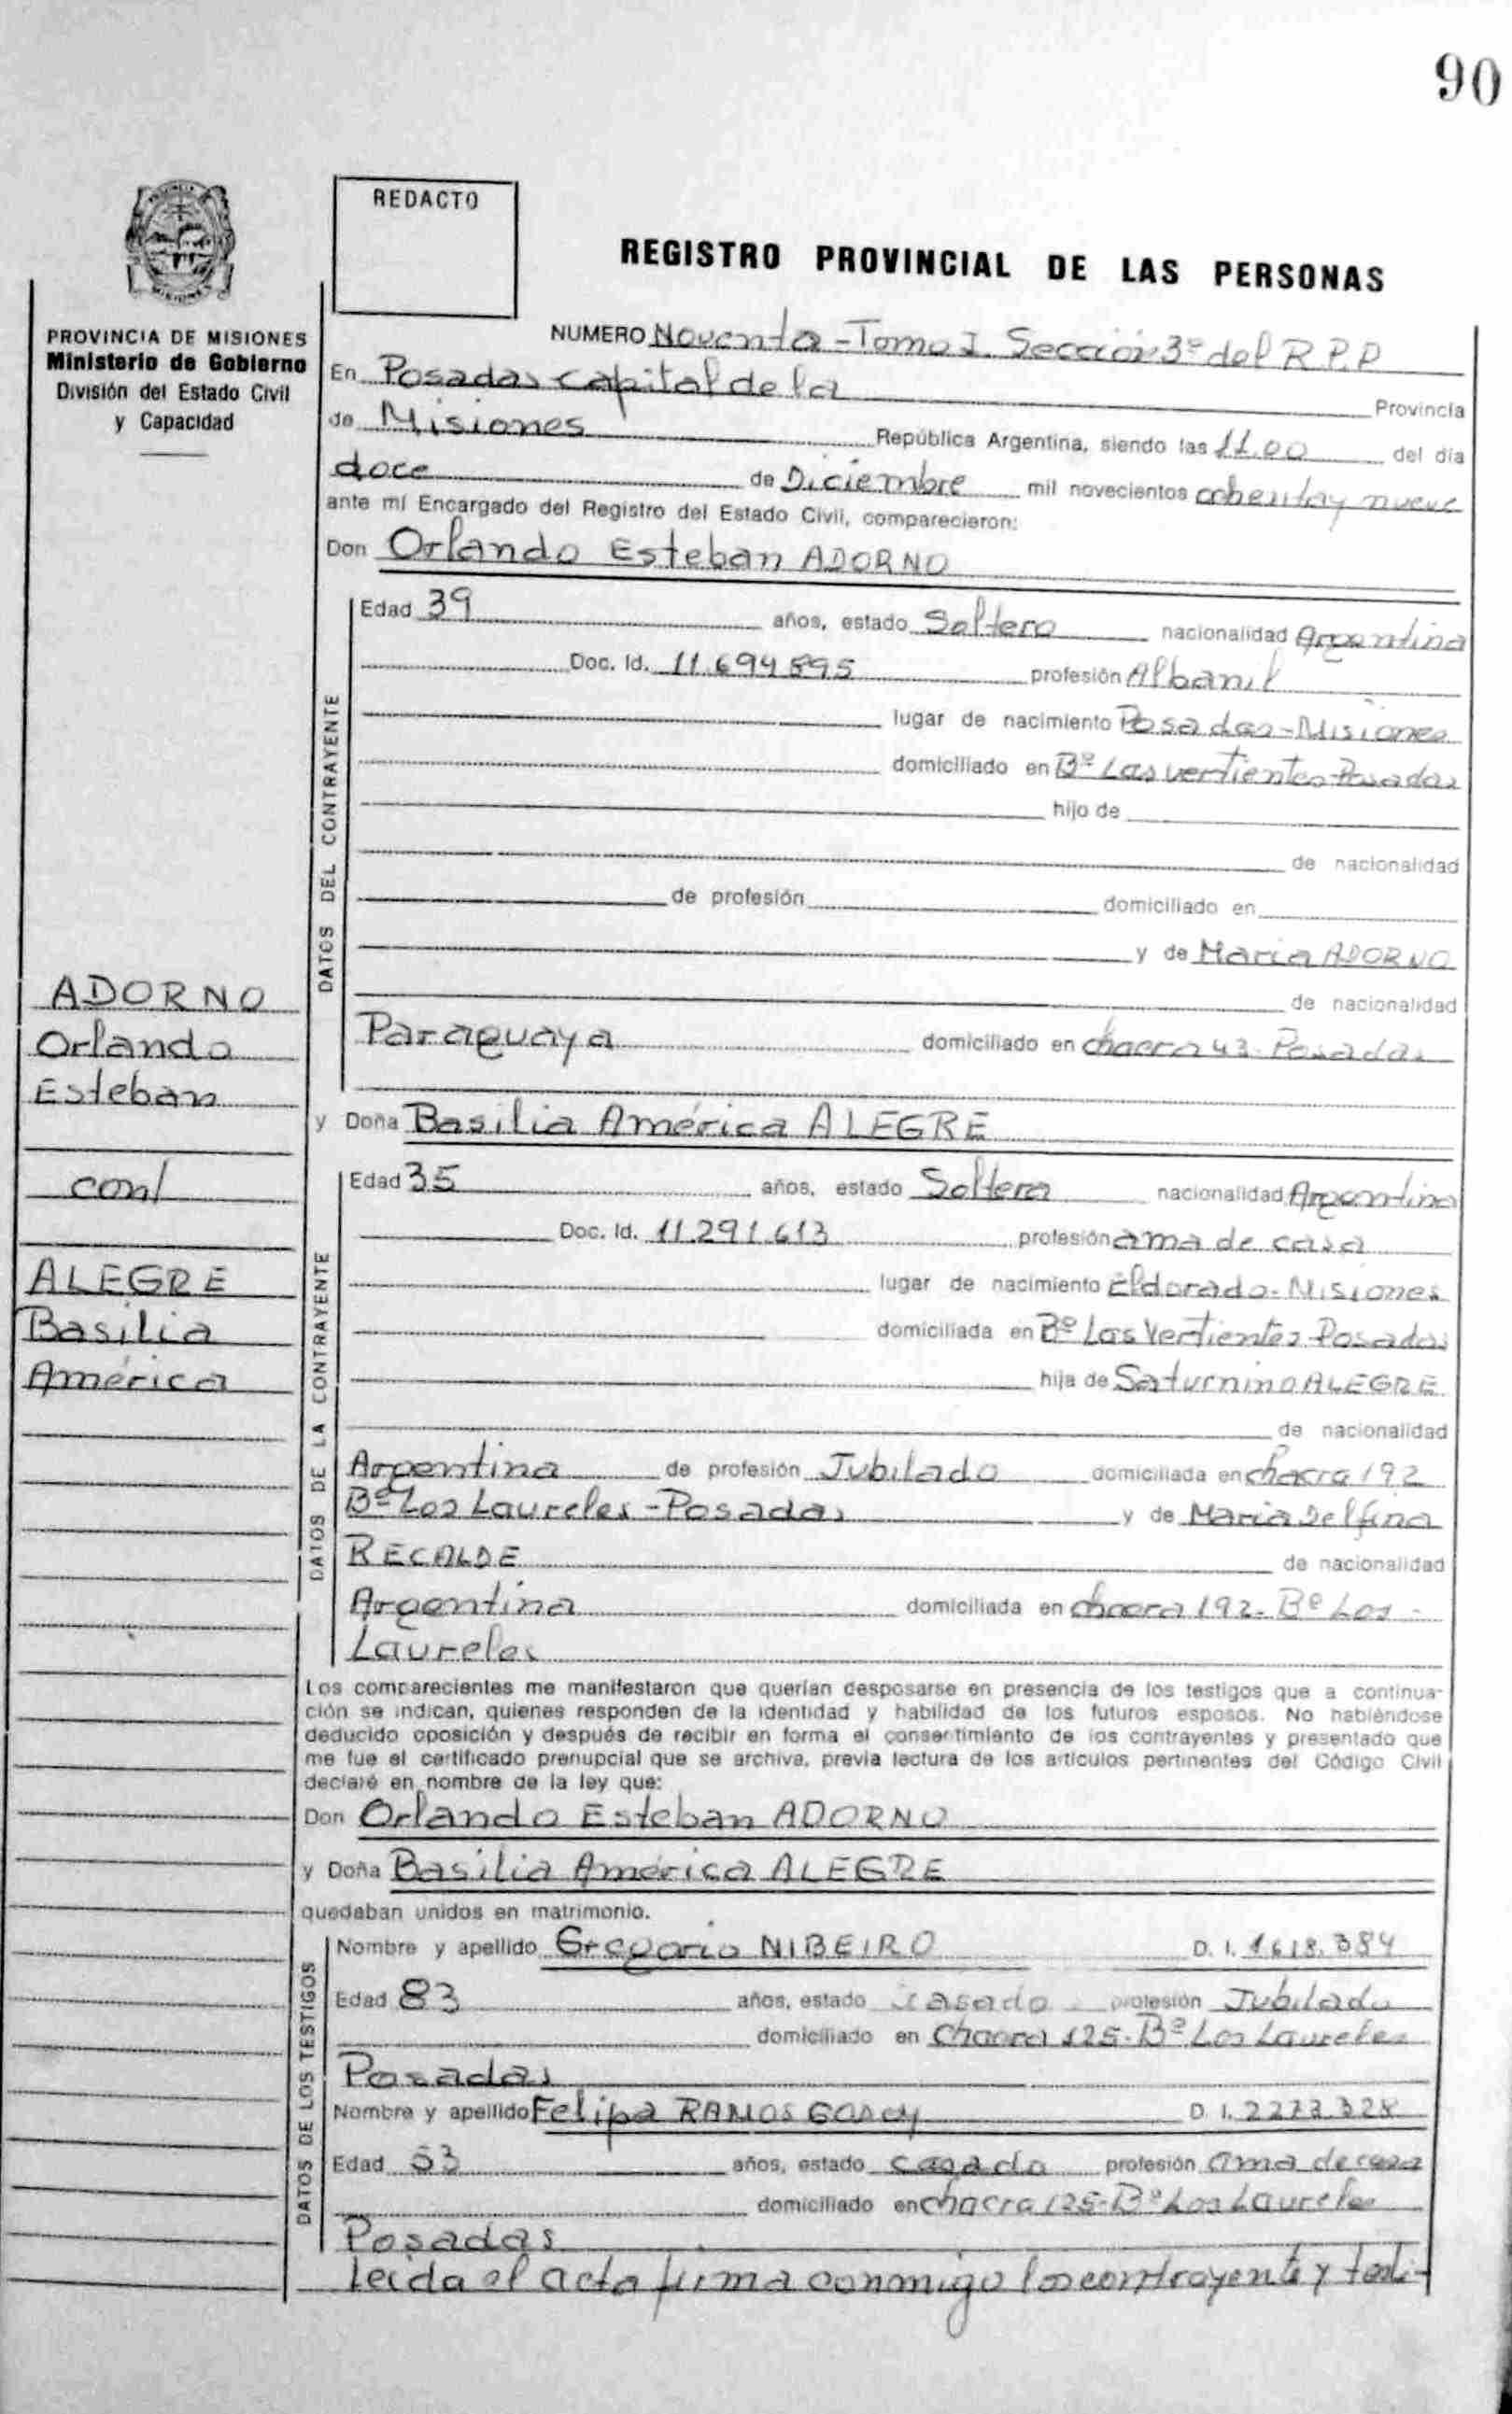 90
REDACTO
REGISTRO PROVINCIAL DE LAS PERSONAS
MISIONES
PROVINCIA DE MISIONES
Ministerio de Gobierno
División del Estado Civil
y Capacidad
NUMERO Noventa - Tomo I. Sección 3º del R.P.P
En Posadas capital de la Provincia
de Misiones República Argentina, siendo las 11.00 del día
doce de Diciembre mil novecientos ochenta y nueve
ante mí Encargado del Registro del Estado Civil, comparecieron:
Don Orlando Esteban ADORNO
DATOS DEL CONTRAYENTE
Edad 39 años, estado Soltero nacionalidad Argentina
Doc. Id. 11.694.895 profesión Albanil
lugar de nacimiento Posadas - Misiones
domiciliado en Bº Las vertientes Posadas
hijo de
de nacionalidad
de profesión domiciliado en
y de Maria ADORNO
de nacionalidad
Paraguaya domiciliado en chacra 43 - Posadas
ADORNO
Orlando
Esteban
con
ALEGRE
Basilia
América
y Doña Basilia América ALEGRE
DATOS DE LA CONTRAYENTE
Edad 35 años, estado Soltera nacionalidad Argentina
Doc. Id. 11.291.613 profesión ama de casa
lugar de nacimiento Eldorado - Misiones
domiciliada en Bº Las Vertientes Posadas
hija de Saturnino ALEGRE
de nacionalidad
Argentina de profesión Jubilado domiciliada en chacra 192
Bº Los Laureles - Posadas y de Maria Delfina
RECALDE de nacionalidad
Argentina domiciliada en chacra 192 - Bº Los -
Laureles
Los comparecientes me manifestaron que querían desposarse en presencia de los testigos que a continua-
ción se indican, quienes responden de la identidad y habilidad de los futuros esposos. No habiéndose
deducido oposición y después de recibir en forma el consentimiento de los contrayentes y presentado que
me fue el certificado prenupcial que se archiva, previa lectura de los artículos pertinentes del Código Civil
declaré en nombre de la ley que:
Don Orlando Esteban ADORNO
y Doña Basilia América ALEGRE
quedaban unidos en matrimonio.
DATOS DE LOS TESTIGOS
Nombre y apellido Gregorio NIBEIRO D. I. 1.618.384
Edad 83 años, estado casado profesión Jubilado
domiciliado en Chacra 125 - Bº Los Laureles
Posadas
Nombre y apellido Felipa RAMOS GODOY D. I. 2273328
Edad 53 años, estado casada profesión ama de casa
domiciliado en chacra 125 - Bº Los Laureles
Posadas
Leida el acta firma conmigo los contrayente y testi-